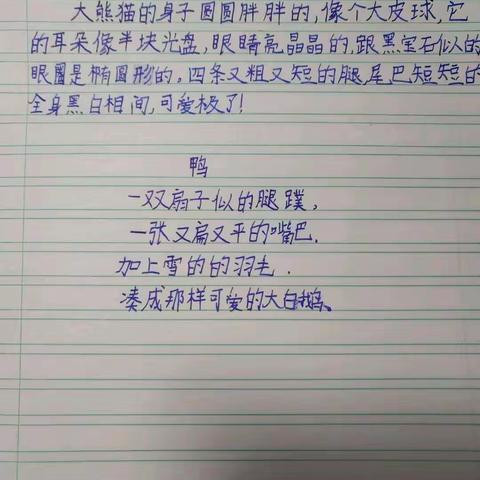 大熊猫的身子圆圆胖胖的,像个大皮球,它
的耳朵像半块光盘,眼睛亮晶晶的,跟黑宝石似的
眼圈是椭圆形的。四条又粗又短的腿,尾巴短短的
全身黑白相间,可爱极了!
鸭
一双扇子似的腿蹼,
一张又扁又平的嘴巴.
加上雪的的羽毛.
凑成那样可爱的大白鹅。